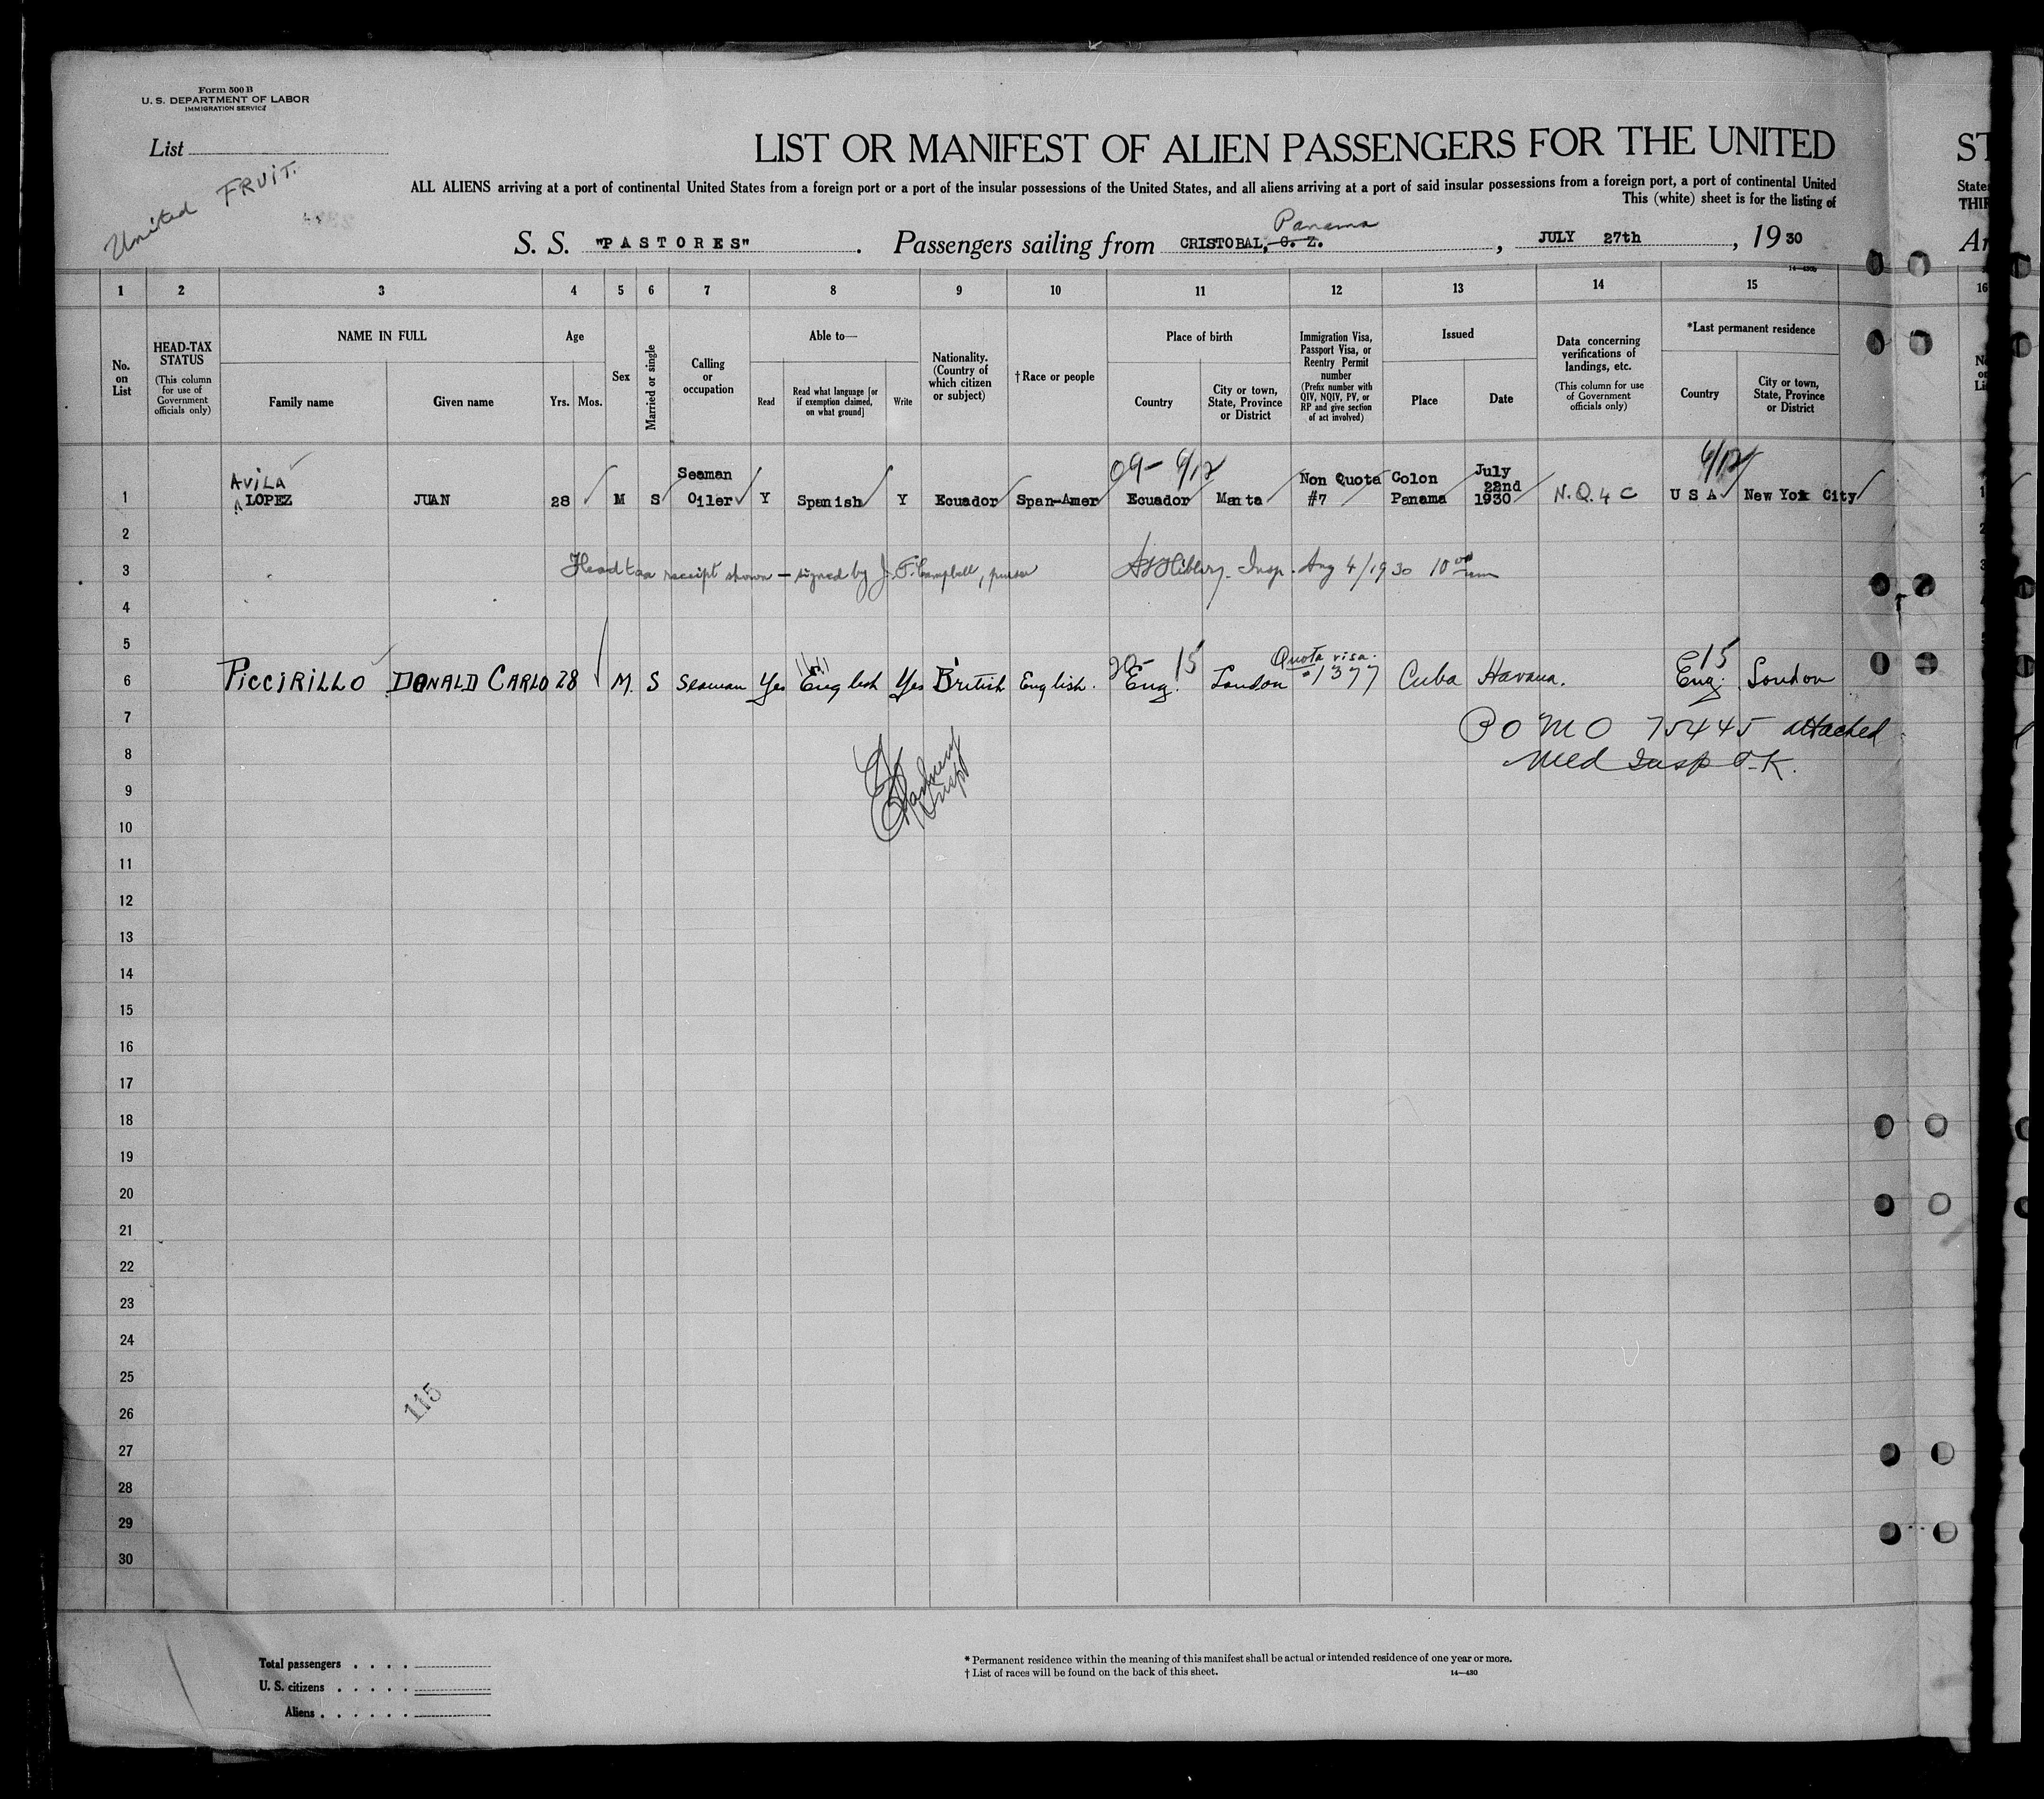 Form 500 B
U. S. DEPARTMENT OF LABOR
IMMIGRATION SERVICE
List
United FRUIT.
LIST OR MANIFEST OF ALIEN PASSENGERS FOR THE UNITED
ST
ALL ALIENS arriving at a port of continental United States from a foreign port or a port of the insular possessions of the United States, and all aliens arriving at a port of said insular possessions from a foreign port, a port of continental United
State
This (white) sheet is for the listing of
THIR
Panama
S. S. "PASTORES". Passengers sailing from CRISTOBAL, C. Z., JULY 27th, 1930
14—430b
1 2 3 4 5 6 7 8 9 10 11 12 13 14 15 16
No. on List
HEAD-TAX STATUS
(This column for use of Government officials only)
NAME IN FULL
Family name
Given name
Age
Yrs. Mos.
Sex
Married or single
Calling or occupation
Able to—
Read
Read what language [or if exemption claimed, on what ground]
Write
Nationality. (Country of which citizen or subject)
†Race or people
Place of birth
Country
City or town, State, Province or District
Immigration Visa, Passport Visa, or Reentry Permit number
(Prefix number with QIV, NQIV, PV, or RP and give section of act involved)
Issued
Place
Date
Data concerning verifications of landings, etc.
(This column for use of Government officials only)
*Last permanent residence
Country
City or town, State, Province or District
09- 6/12 6/12
AVILA Seaman Non Quota Colon July 22nd
1 LOPEZ JUAN 28 M S Oiler Y Spanish Y Ecuador Span-Amer Ecuador Manta #7 Panama 1930 N.Q. 4 C U S A New York City
2
3 Head tax receipt shown — signed by J. F. Campbell, purser Insp. Aug 4/1930 10
4
5
20- 15 Quota visa. 15
6 PICCIRILLO DONALD CARLO 28 M. S Seaman Yes English Yes British English. Eng. London #1377 Cuba Havana. Eng. London
7 P O M O 75445 attached
8 Med Insp O.K.
9
10
11
12
13
14
15
16
17
18
19
20
21
22
23
24
25
26
115
27
28
29
30
Total passengers . . . .
U. S. citizens . . . . .
Aliens . . . . . .
* Permanent residence within the meaning of this manifest shall be actual or intended residence of one year or more.
† List of races will be found on the back of this sheet.
14—430